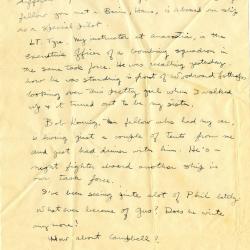 differen
fellow you met - Bain, Hans, is aboard on ship
as a special pilot.
LT. Tye my instructor at Anacostia, is the
executive officer of a bombing squadron in
the same task force. He was recalling yesterday
how he was standing in front of Woodward & Lothrop
looking over this pretty girl when I walked
up & it turned out to be my sister.
Bob, the fellow who had my car,
is living just a couple of tents from me
and just had dinner with him. He's a
night fighter aboard another ship in
our task force.
I've been seeing quite alot of Phil lately.
Whatever became of Gus? Does he write
any more?
How about Campbell?